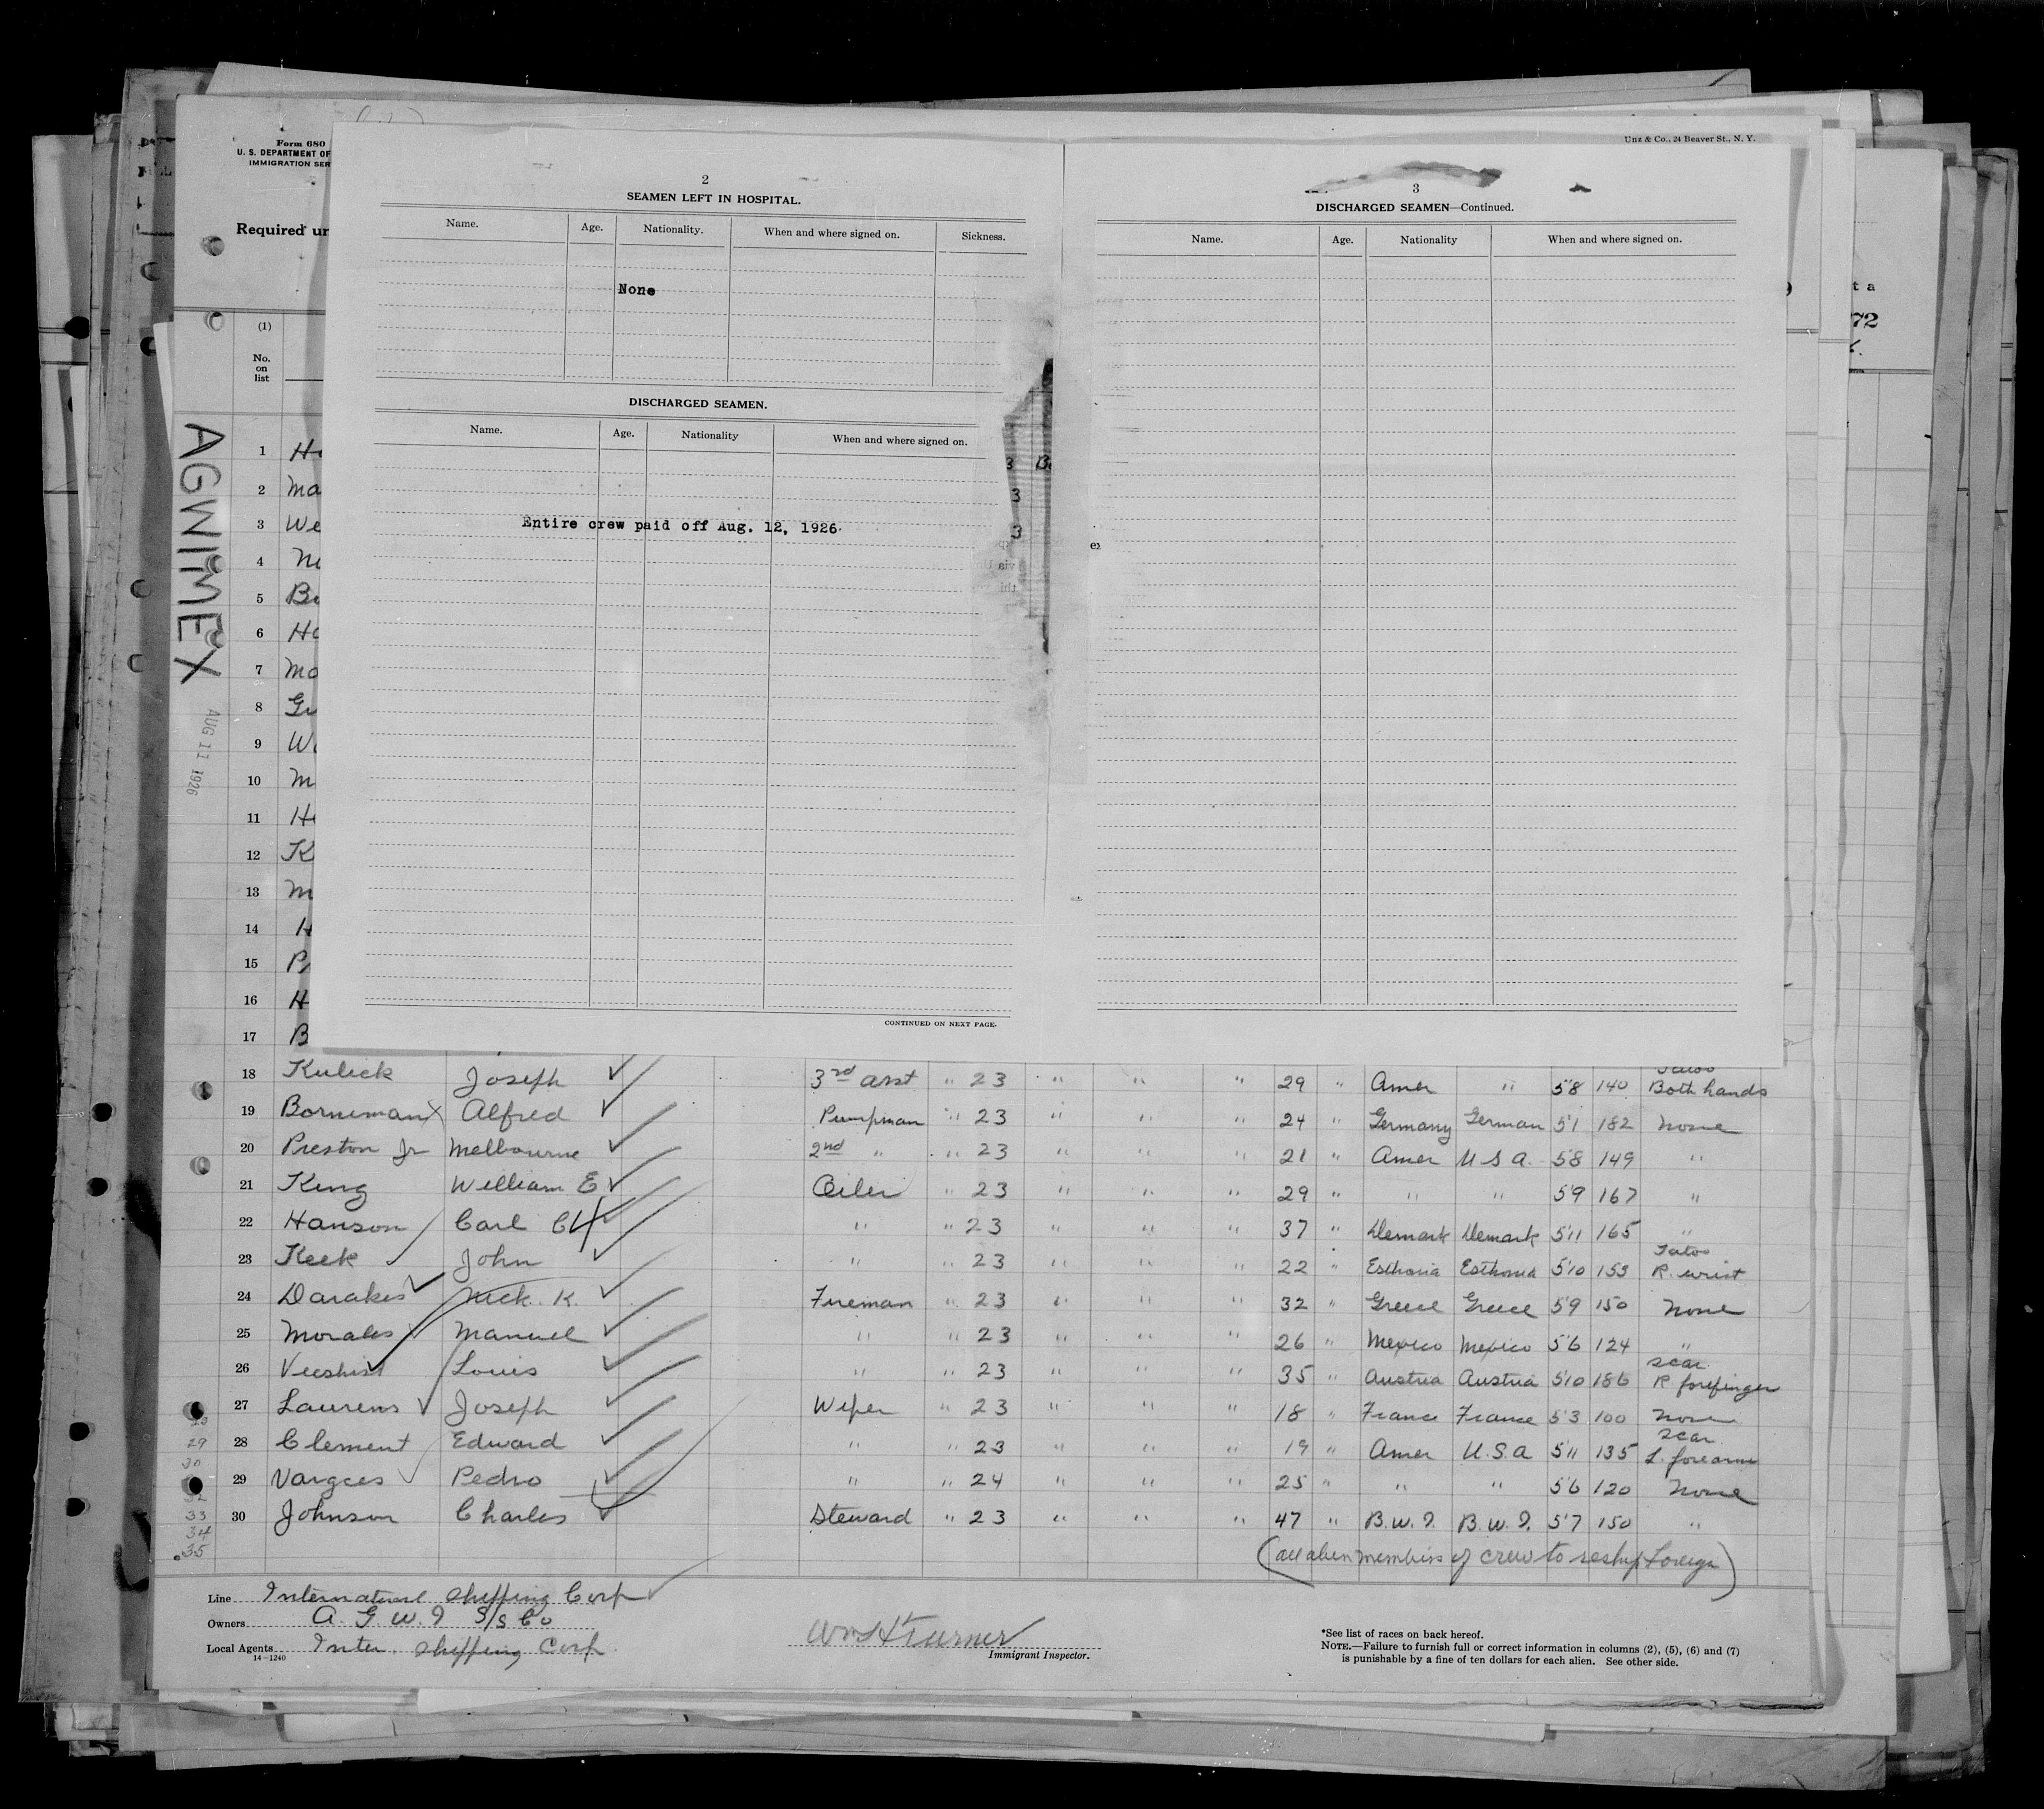 Form 680
U. S. DEPARTMENT OF
IMMIGRATION SER
Required un
(1)
No.
on
list
AGWIMEX
AUG 11 1926
Unz & Co., 24 Beaver St., N. Y.
t a
72
2
SEAMEN LEFT IN HOSPITAL.
Name. Age. Nationality. When and where signed on. Sickness.
None
DISCHARGED SEAMEN.
Name. Age. Nationality When and where signed on.
Entire crew paid off Aug. 12, 1926.
CONTINUED ON NEXT PAGE.
3
DISCHARGED SEAMEN—Continued.
Name. Age. Nationality When and where signed on.
1 Ha
2 Ma
3 We
4 Ne
5 Be
6 Ha
7 Mo
8 Gu
9 W
10 M
11 H
12 K
13 M
14 H
15 P
16 H
17 B
18 Kulick Joseph 3rd asst " 23 " " " 29 " Amer " 5'8 140 Tatoo Both hands
19 Borneman X Alfred Pumpman " 23 " " " 24 " Germany German 5'1 182 None
20 Preston Jr Melbourne 2nd " " 23 " " " 21 " Amer U S A. 5'8 149 "
21 King William E Oiler " 23 " " " 29 " " " 5'9 167 "
22 Hanson Carl C " " 23 " " " 37 " Demark Demark 5'11 165 "
23 Keek John " " 23 " " " 22 " Esthonia Esthonia 5'10 153 Tatoo R. wrist
24 Darakes Nick. K. Fireman " 23 " " " 32 " Greece Greece 5'9 150 None
25 Morales Manuel " " 23 " " " 26 " Mexico Mexico 5'6 124 "
26 Louis " " 23 " " " 35 " Austria Austria 5'10 186 Scar R forefinger
27 Laurens Joseph Wiper " 23 " " " 18 " France France 5'3 100 None
28 Clement Edward " " 23 " " " 19 " Amer U.S.A 5'11 135 Scar L. forearm
29 Vargces Pedro " " 24 " " " 25 " " " 5'6 120 None
30 Johnson Charles Steward " 23 " " " 47 " B.W.I. B.W.I. 5'7 150 "
29
30
33
34
35
(all alien members of crew to reship foreign)
Line International Shipping Corp
Owners A. G. W. I S/S Co
Local Agents Inter. Shipping Corp.
14—1240
Wm H Turner
Immigrant Inspector.
*See list of races on back hereof.
NOTE.—Failure to furnish full or correct information in columns (2), (5), (6) and (7)
is punishable by a fine of ten dollars for each alien. See other side.